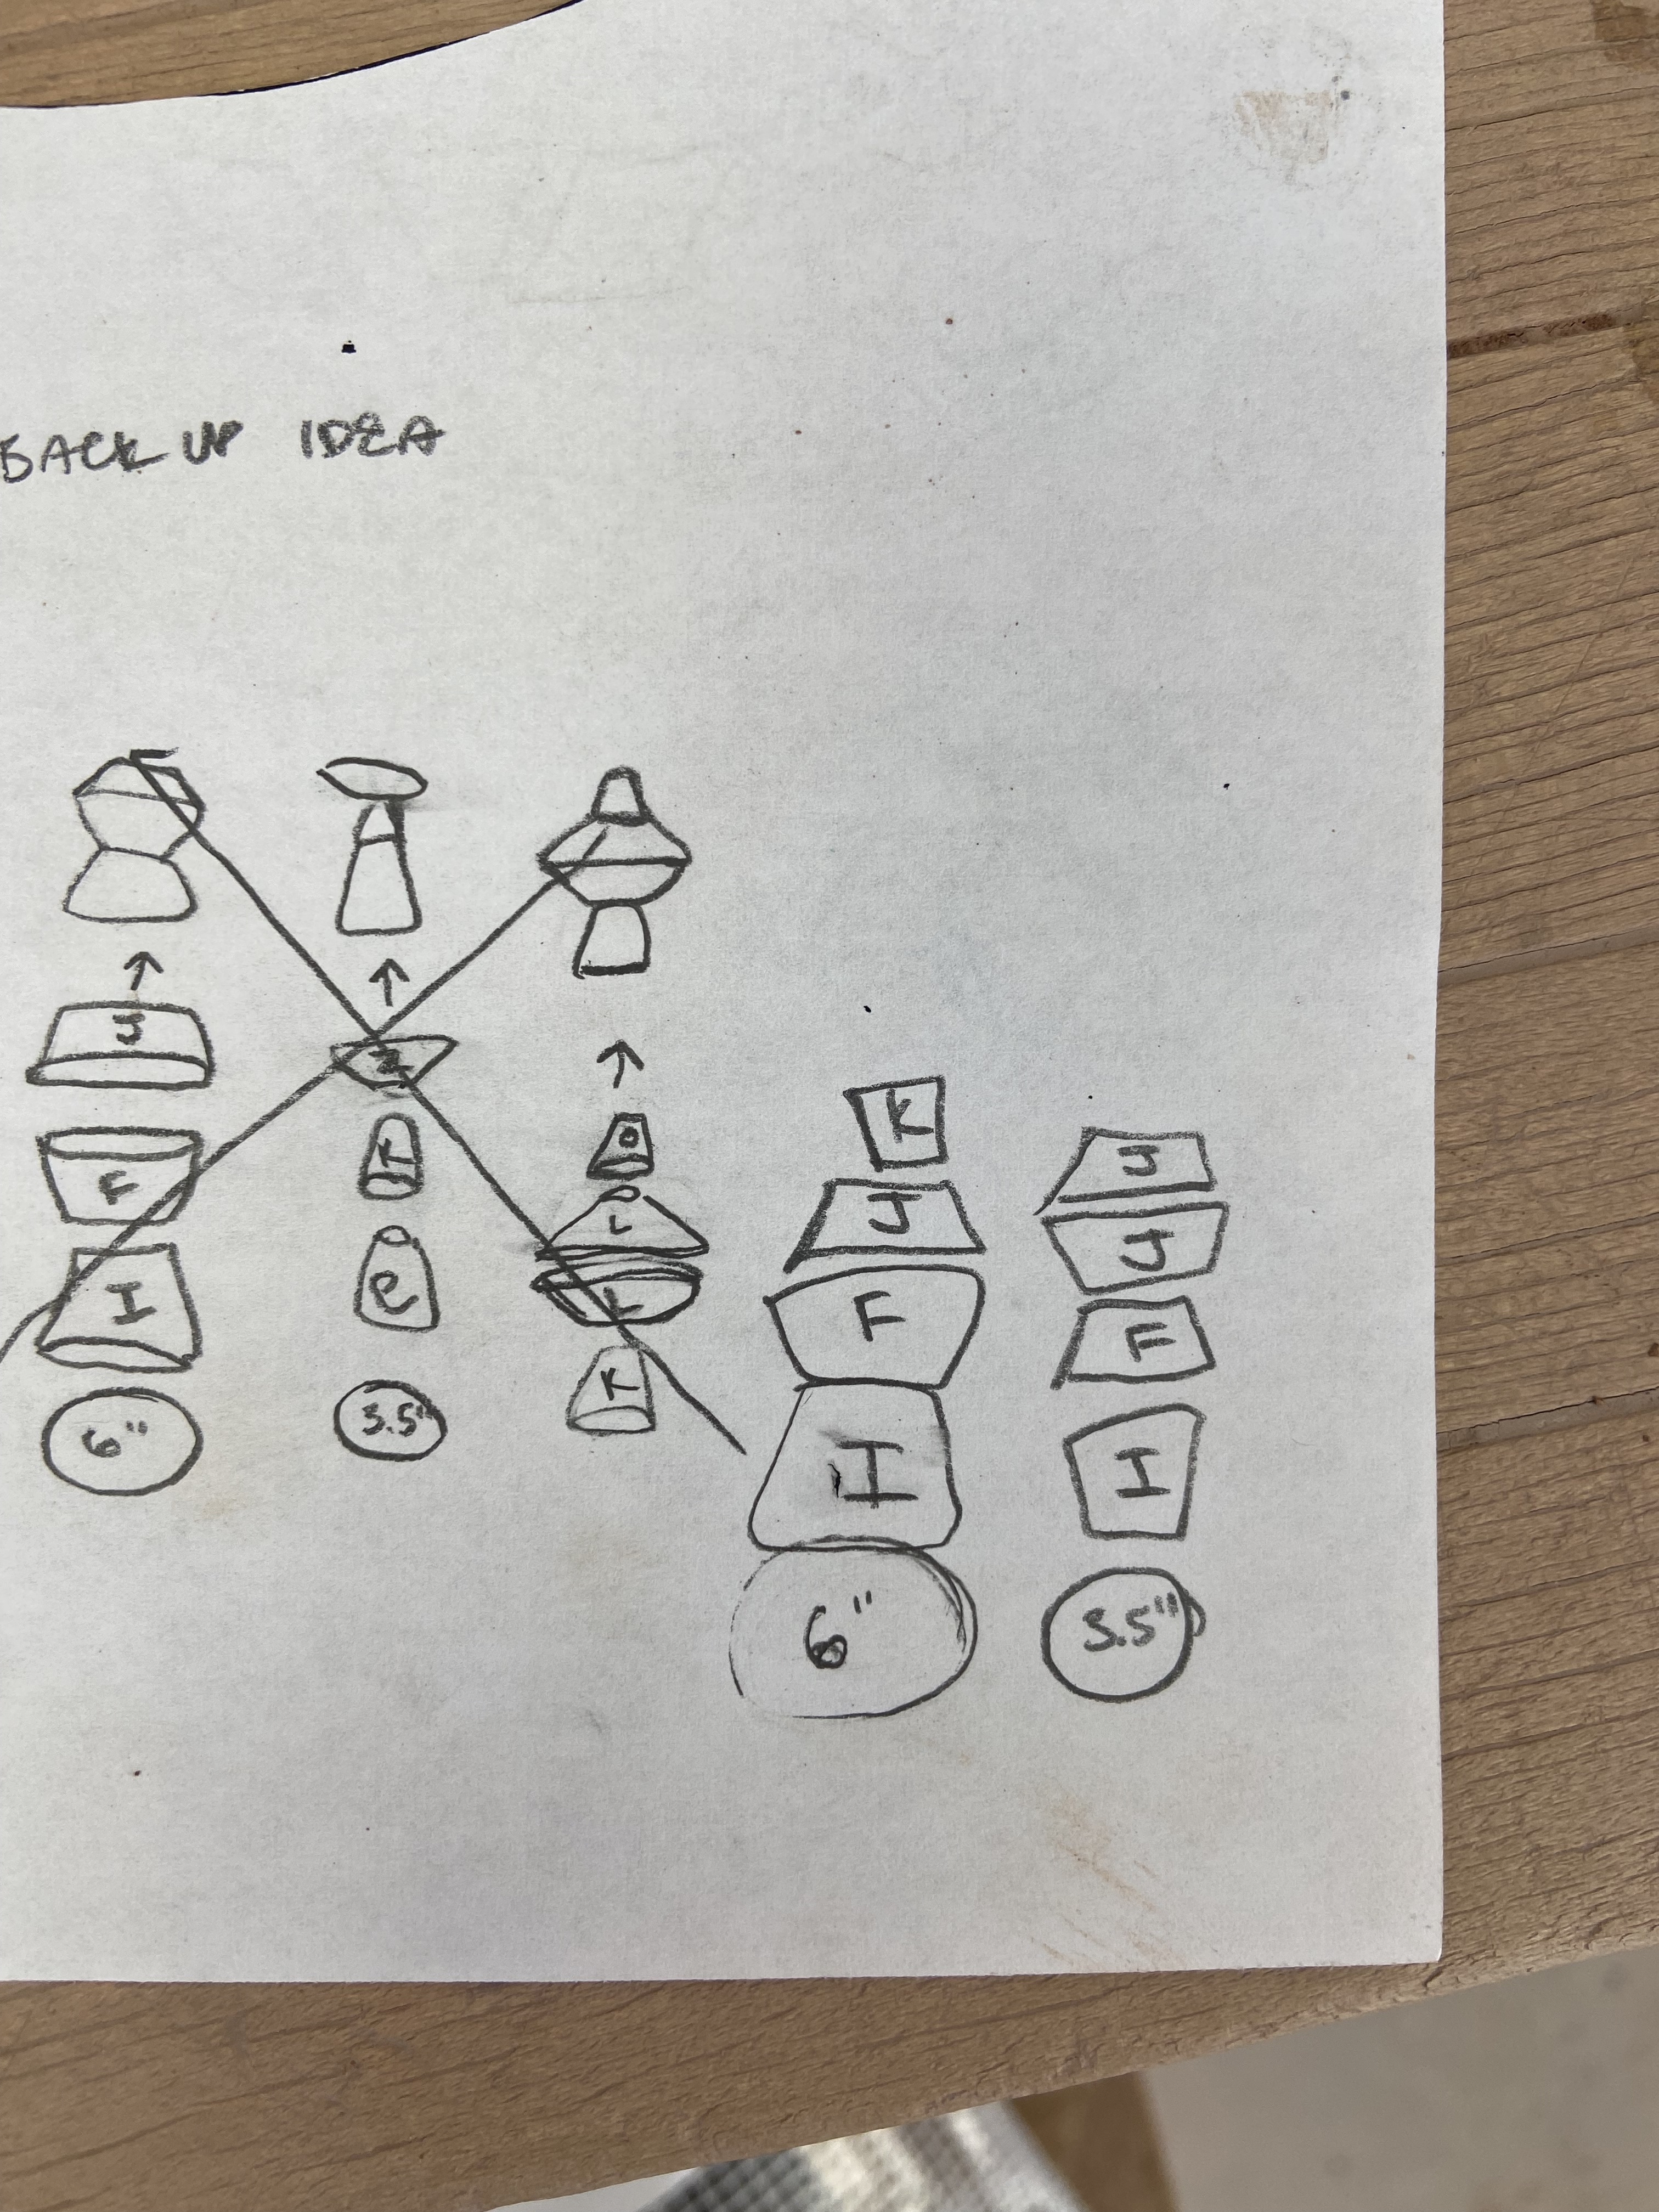 BACK UP IDEA
J
F
I
6"
K
e
3.5"
K
K
J
F
I
6"
J
J
F
I
3.5"